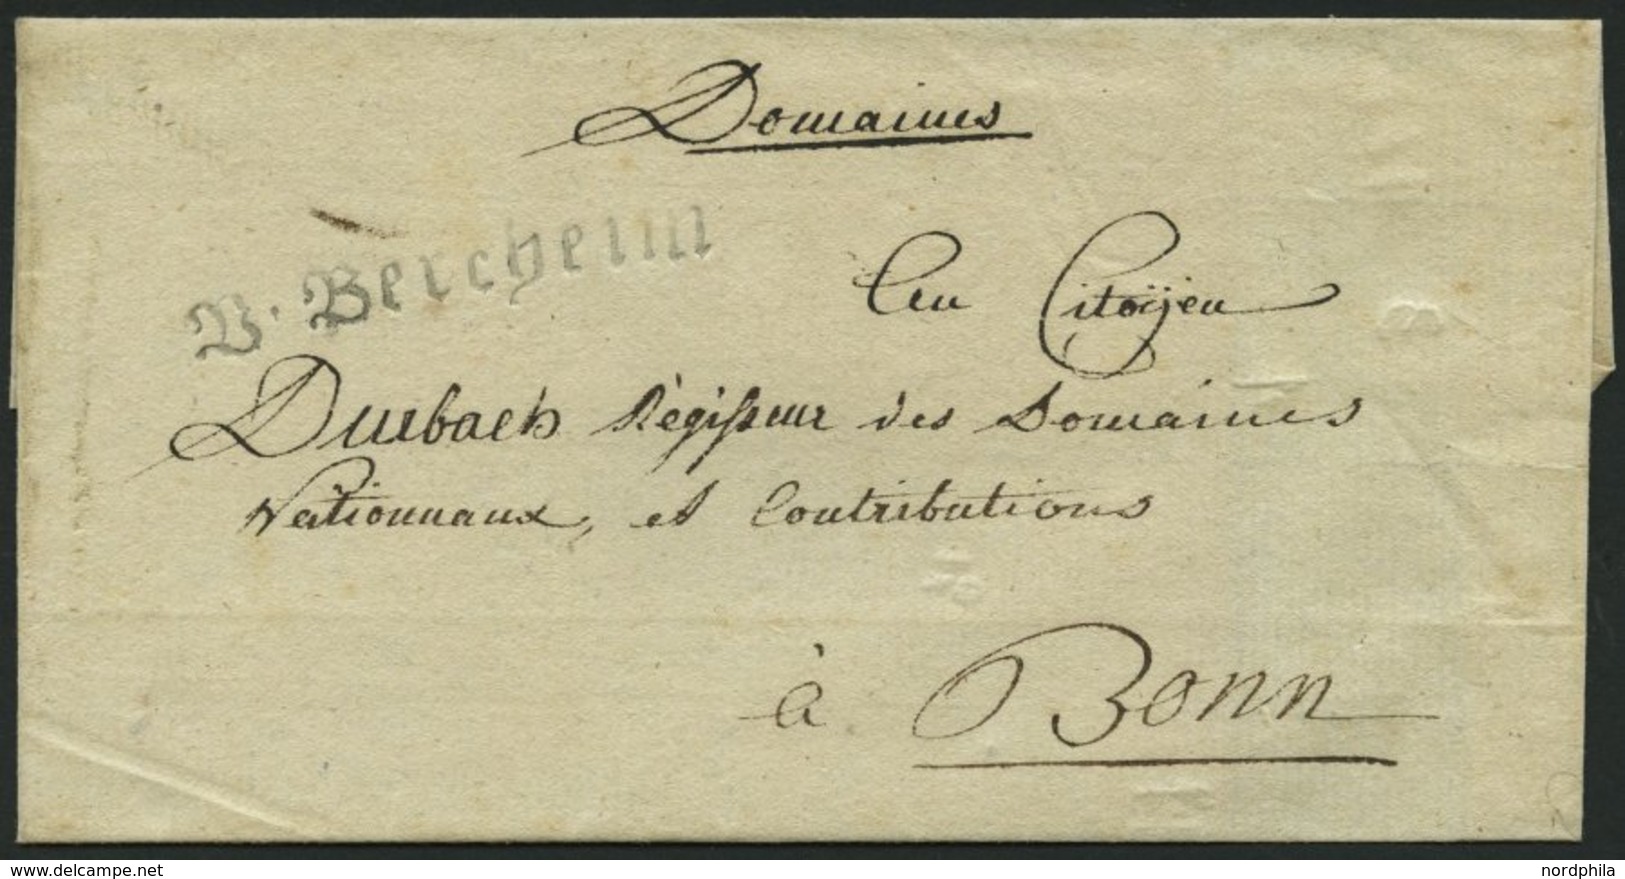 Domaines
V. Bercheim
Au Citoÿen
Durbach Régisseur des Domaines
Nationnaux, et Contributions
à Bonn
delcampe.net
nordphila